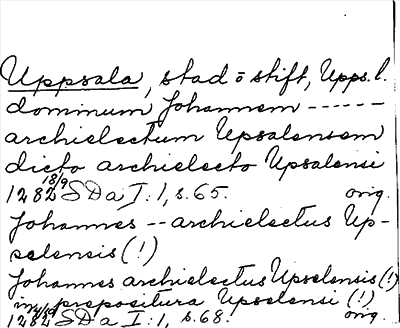 Uppsala, stad o stift, Upps. l.
dominum Johannem ------
archielectum Upsalensem
dicto archielecto Upsalensi
1282 18/9 SD a I:1, s. 65. orig.
Johannes -- archielectus Up-
selensis (!)
Johannes archielectus Upselensis (!)
in prepositura Upselensi (!)
1282 SD a I:1, s. 68. orig.